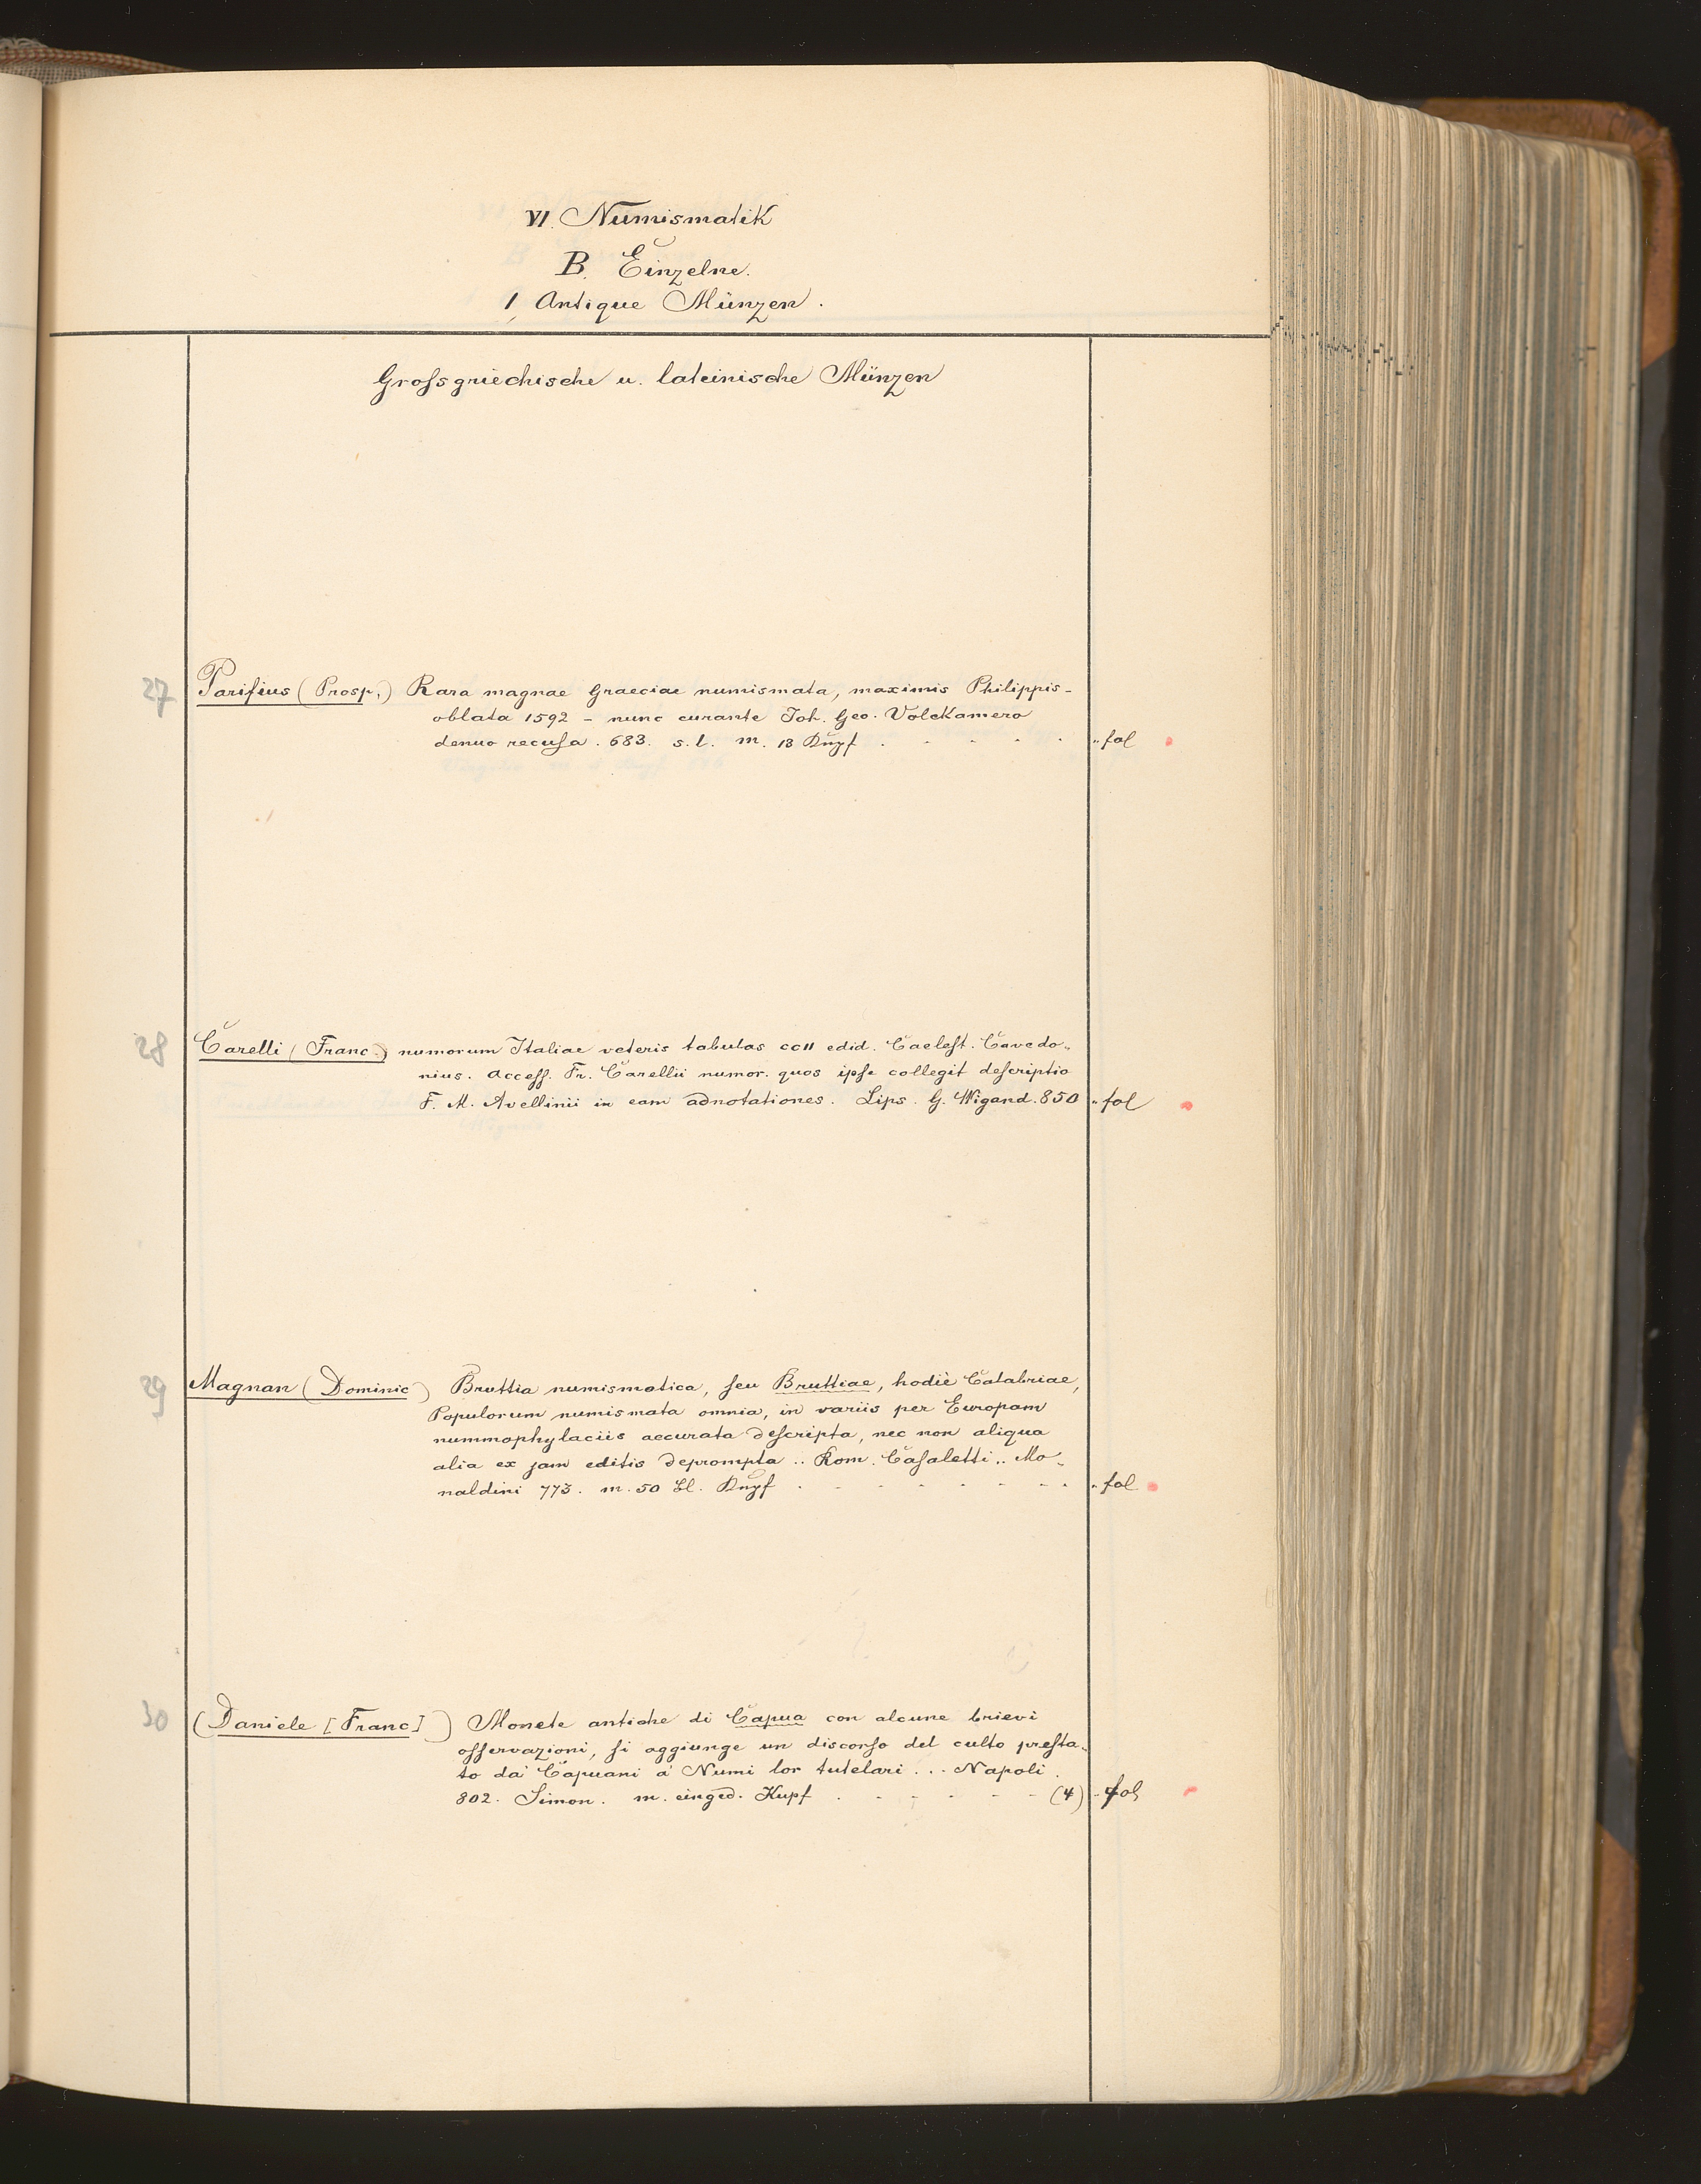 VI. Numismatik
B. Einzelne.
1, Antique Münzen.
Grossgriechische u. lateinische Münzen
27 Parisius (Prosp.) Rara magnae Graeciae numismata, maximis Philippis-
oblata 1592 - nunc curante Joh. Geo. Volckamero
denuo recusa. 683. s.l. m. 18 Kupf . . . . . " fol
28 Carelli (Franc.) numorum Italiae veteris tabulas CCII edid. Caelest. Cavedo-
nius. Access. Fr. Carellii numor. quos ipse collegit descriptio
F. M. Avellinii in eam adnotationes. Lips. G. Wigand. 850 " fol
29 Magnan (Dominic) Bruttia numismatica, seu Bruttiae, hodiè Calabriae,
Populorum numismata omnia, in variis per Europam
nummophylaciis accurata descripta, nec non aliqua
alia ex jam editis deprompta .. Rom. Casaletti .. Mo-
naldini 773. m. 50 Bl. Kupf . . . . . . . . " fol
30 (Daniele [Franc]) Monete antiche di Capua con alcune brievi
osservazioni, si aggiunge un discorso del culto presta-
to da' Capuani a' Numi lor tutelari ... Napoli.
802. Simon. m. eingedr. Kupf . . . . . . (4) - fol